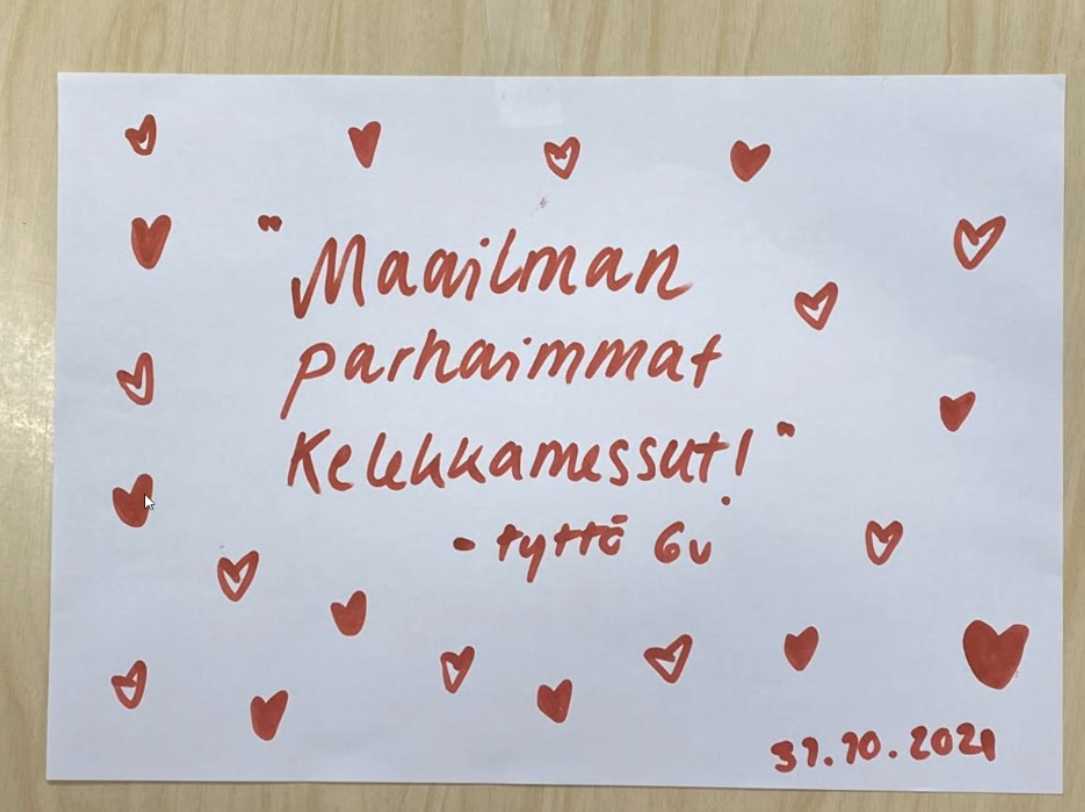 "Maailman
parhaimmat
Kelekkamessut!"
- tyttö 6v
31.10.2021